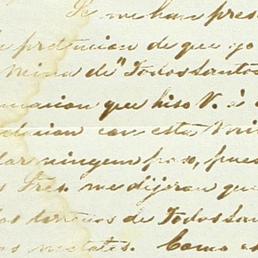 Se me han pres
de pretencion de que yo
Mina de "Todos Santos
macion que hiso V. á
relacion con esta Nori
dar ningun paso, pues
Tres. me dijeran que
los terrenos de Todos San
metates. Como es